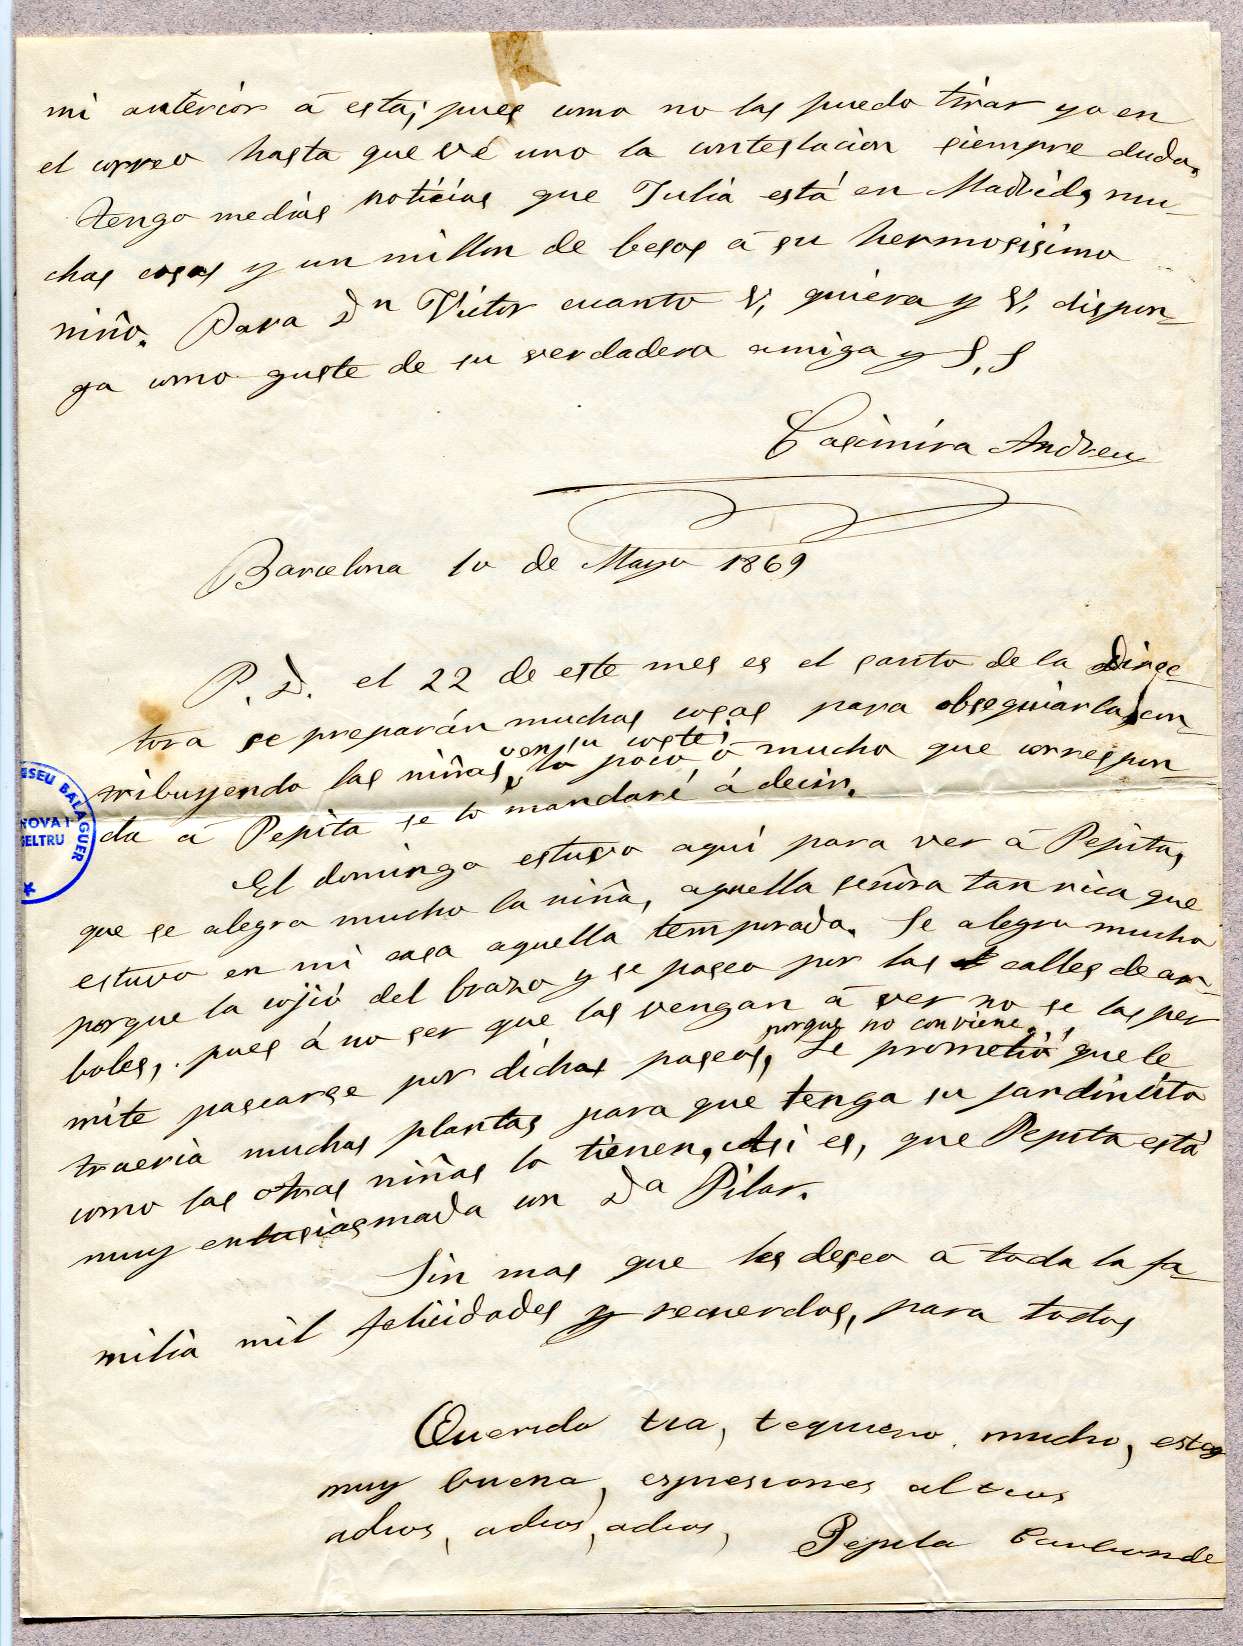 mi anterior á esta; pues como no las puedo tirar yo en
el correo hasta que vé uno la contestacion siempre duda.
tengo medias noticias que Julia está en Madrid, mu-
chas cosas y un millon de besos á su hermosisimo
niño. Para Dn Victor cuanto V, quiera y V, dispon-
ga como guste de su verdadera amiga y S, S
Casimira Andreu
Barcelona 10 de Mayo 1869
P. D. el 22 de este mes es el santo de la Direc-
tora se preparán muchas cosas para obsequiarla, con-
tribuyendo las niñas, en su coste; lo poco ó mucho que correspon-
da á Pepita se lo mandaré á decir.
El domingo estuvo aqui para ver á Pepita,
que se alegra mucho la niña, aquella señora tan rica que
estuvo en mi casa aquella temporada. Se alegra mucho
porque la cojió del brazo y se paseo por las calles de ar-
boles, pues á no ser que las vengan á ver no se las per
mite pasearse por dichos paseos, porque no conviene. Le prometió que le
traeria muchas plantas para que tenga su jardincito
como las otras niñas lo tienen, Asi es, que Pepita está
muy entusiasmada con Da Pilar.
Sin mas que les deseo á toda la fa-
milia mil felicidades y recuerdos, para todos
Querida tia, te quiero mucho, estoy
muy buena, espresiones al tios
adios, adios, adios, Pepita
MUSEU BALAGUER
NOVA I
GELTRU